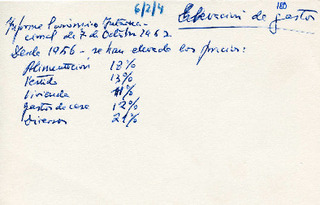 6/2/4
180
Elevación de gastos
Informe Económico Interna-
cional de 7 de Octubre 1962.
Desde 1956 - se han elevado los precios:
Alimentación 18%
Vestido 13%
Vivienda 11%
gastos de casa 12%
Diversos 21%